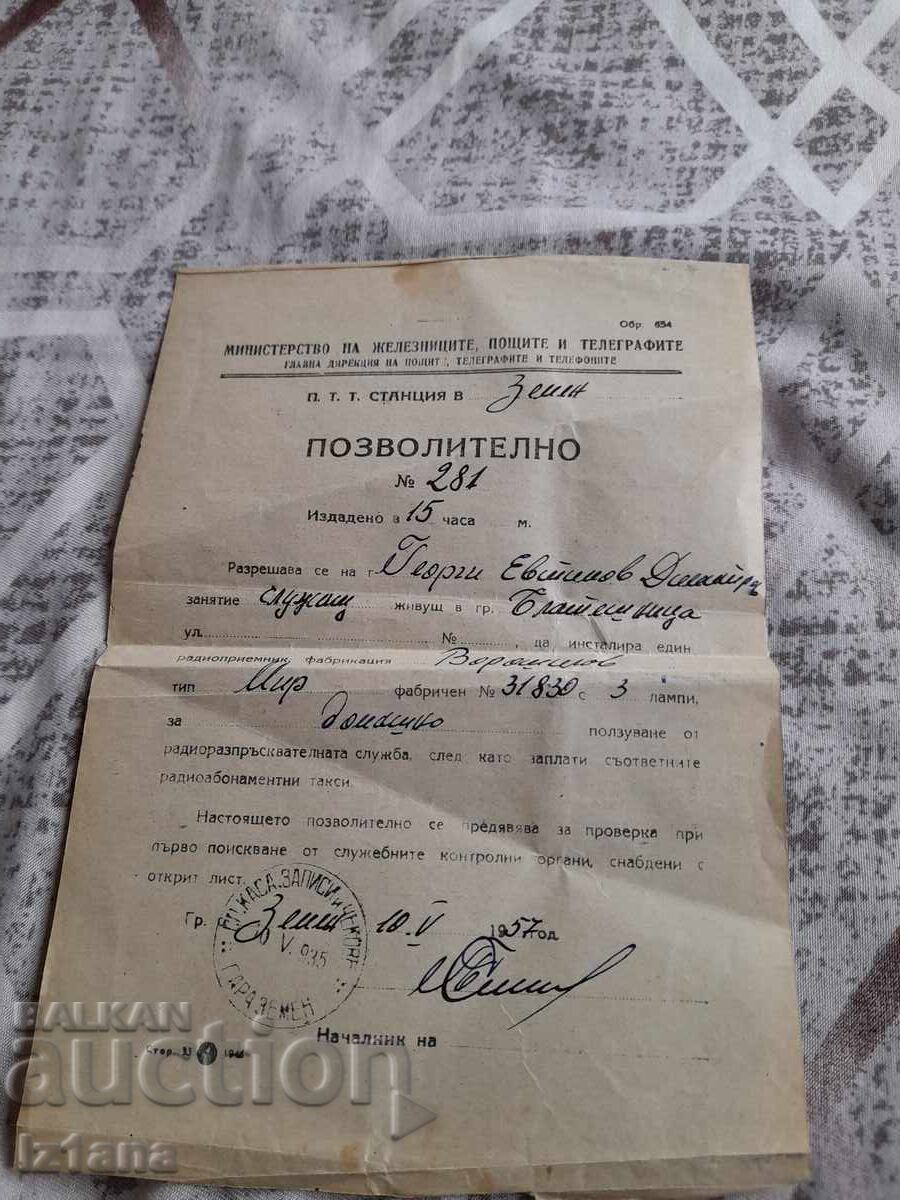 Обр. 654
МИНИСТЕРСТВО НА ЖЕЛЕЗНИЦИТЕ, ПОЩИТЕ И ТЕЛЕГРАФИТЕ
ГЛАВНА ДИРЕКЦИЯ НА ПОЩИТЕ, ТЕЛЕГРАФИТЕ И ТЕЛЕФОНИТЕ
П. Т. Т. СТАНЦИЯ В Земен
ПОЗВОЛИТЕЛНО
№ 281
Издадено в 15 часа м.
Разрешава се на г. Георги Евтимов
занятие служащ живущ в гр. Блатешница
ул. №, да инсталира един
радиоприемник, фабрикация Ворошилов
тип Мир фабричен № 31830 с 3 лампи,
за домашно ползуване от
радиоразпръсквателната служба, след като заплати съответните
радиоабонаментни такси.
Настоящето позволително се предявява за проверка при
първо поискване от служебните контролни органи, снабдени с
открит лист.
Гр. Земен 10.V 1957 год.
ГАРА ЗЕМЕН
Началник на
BALKAN
auction
iz1ana